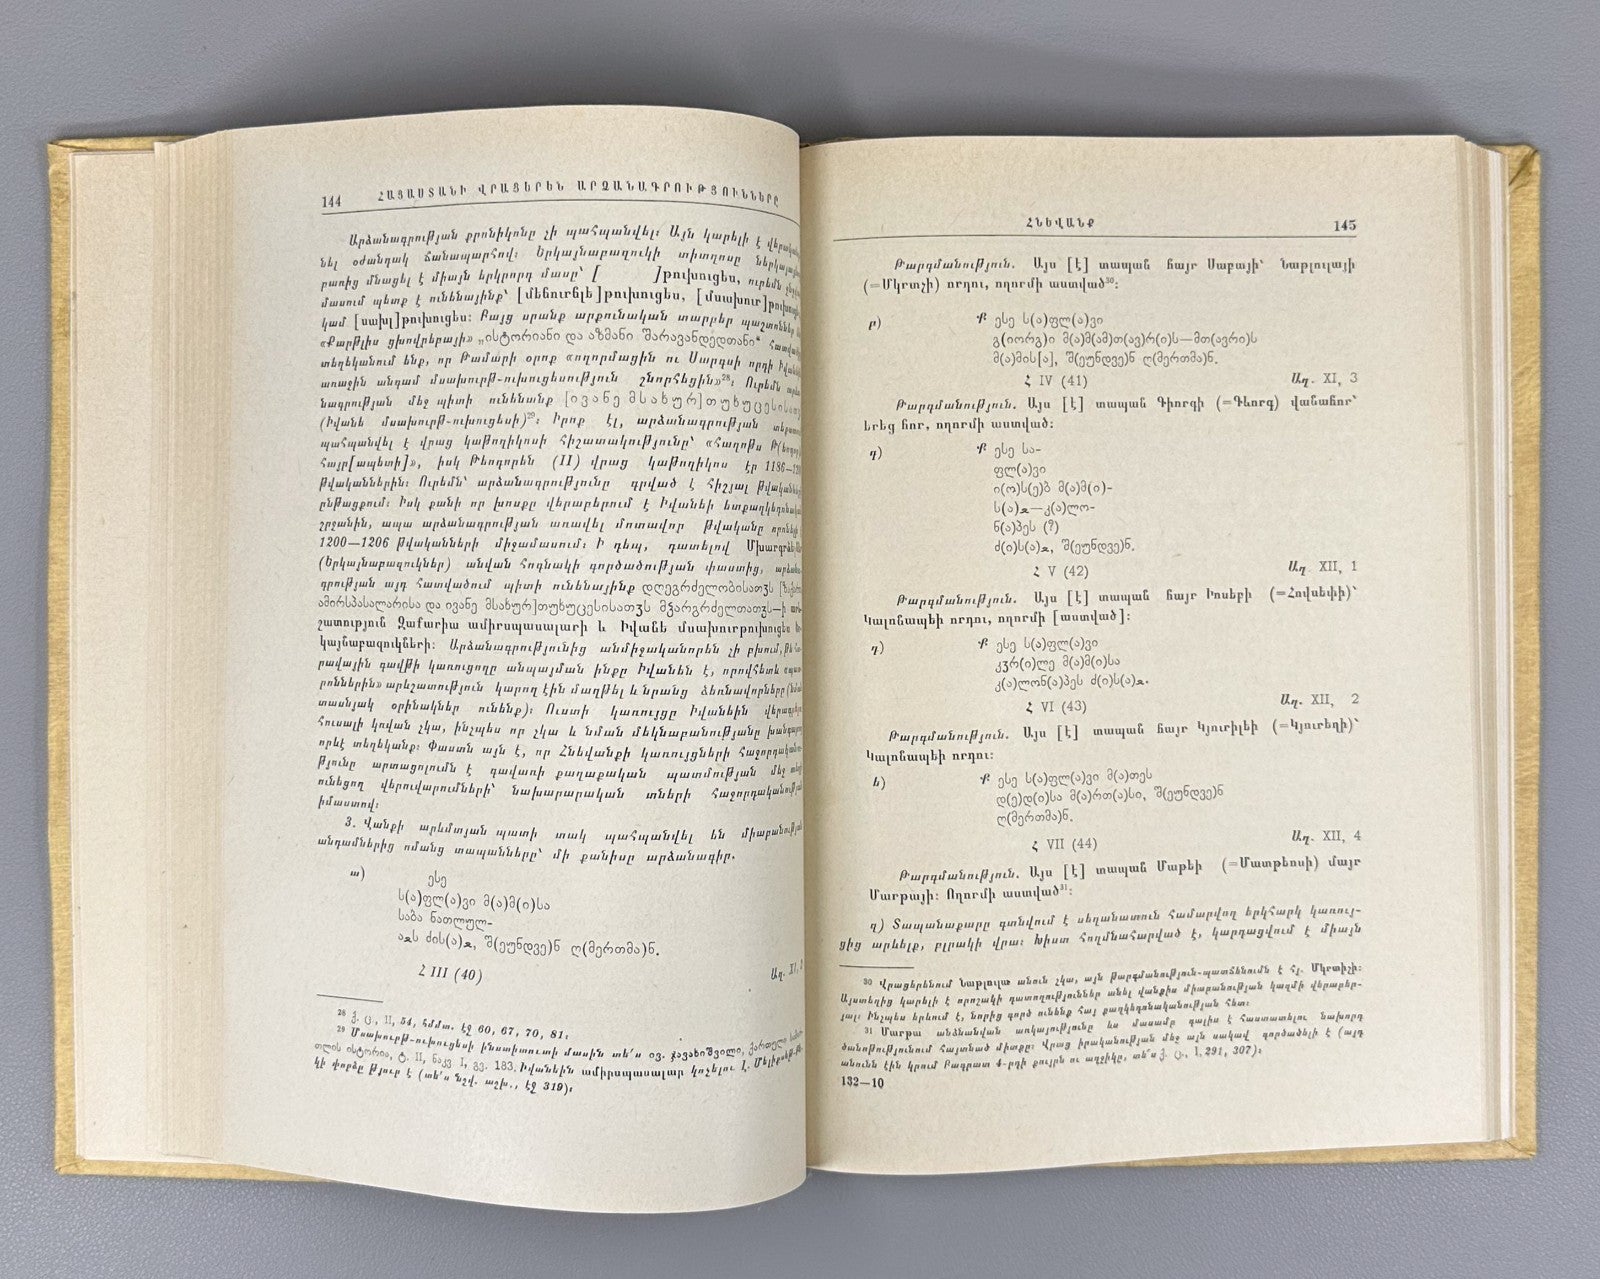 144 ՀԱՅԱՍՏԱՆԻ ՎՐԱՑԵՐԵՆ ԱՐՁԱՆԱԳՐՈՒԹՅՈՒՆՆԵՐԸ
Արձանագրության քրոնիկոնը չի պահպանվել։ Այն կարելի է
նել օժանդակ ճանապարհով։ Երկայնաբազուկի տիտղոսը
բառից մնացել է միայն երկրորդ մասը՝ [ ]թուխուցես, ուրեմն
մասում պետք է ունենայինք՝ [մեճուրճլե]թուխուցես, [մսախուր]թուխուցես
կամ [սախլ]թուխուցես։ Բայց սրանք արքունական տարբեր պաշտոններ
«Քարթլիս ցխովրեբայի» „ისტორიანი და აზმანი შარავანდედთანი“
տեղեկանում ենք, որ Թամարի օրոք «ողորմացին ու Սարգսի որդի Իվանեին
առաջին անգամ մսախուրթ-ուխուցեսություն շնորհեցին»²⁸։ Ուրեմն
նագրության մեջ պիտի ունենանք [ივანე მსახურ]თუხუცესისათჳს
(Իվանե մսախուրթ-ուխուցեսի)²⁹։ Իրոք էլ, արձանագրության
պահպանվել է վրաց կաթողիկոսի հիշատակությունը՝ «հաղոթս Թ(եոդորե)
հայր[ապետի]», իսկ Թեոդորեն (II) վրաց կաթողիկոս էր 1186—
թվականներին։ Ուրեմն՝ արձանագրությունը գրված է հիշյալ թվականների
ընթացքում։ Իսկ քանի որ խոսքը վերաբերում է Իվանեի
շրջանին, ապա արձանագրության առավել մոտավոր թվականը
1200—1206 թվականների միջամասում։ Ի դեպ, դատելով
(Երկայնաբազուկներ) անվան հոգնակի գործածության փաստից,
գրության այդ հատվածում պիտի ունենայինք დღეგრძელობისათჳს
ამირსპასალარისა და ივანე მსახურ]თუხუცესისათჳს მჴარგრძელთათჳს—ի
շատություն Զաքարիա ամիրսպասալարի և Իվանե մսախուրթուխուցես
կայնաբազուկների։ Արձանագրությունից անմիջականորեն չի բխում,
րավային գավթի կառուցողը անպայման ինքը Իվանեն է, որովհետև
րոններին» արևշատություն կարող էին մաղթել և նրանց ձեռնավորները
տասնյակ օրինակներ ունենք)։ Ուստի կառույցը Իվանեին
հուսալի կռվան չկա, ինչպես որ չկա և նման մեկնաբանությանը
որևէ տեղեկանք։ Փաստն այն է, որ Հնեվանքի կառույցների
թյունը արտացոլումն է գավառի քաղաքական պատմության մեջ
ունեցող վերուվարումների՝ նախարարական տների հաջորդականության
իմաստով։
3. Վանքի արևմտյան պատի տակ պահպանվել են միաբանության
անդամներից ոմանց տապանները՝ մի քանիսը արձանագիր.
ա) ესე
ს(ა)ფლ(ა)ვი მ(ა)მ(ი)სა
საბა ნათლულ-
აჲს ძის(ა)ჲ, შ(ეუნდვე)ნ ღ(მერთმა)ნ.
Հ III (40) Աղ. XI, 2
²⁸ ქ. ც., II, 54, հմմտ. էջ 60, 67, 70, 81։
²⁹ Մսախուրթ-ուխուցեսի ինստիտուտի մասին տե՛ս ივ. ჯავახიშვილი, ქართული
თლის ისტორია, ტ. II, ნაკვ. I, გვ. 183. Իվանեին ամիրսպասալար կոչելու
կի փորձը թյուր է (տե՛ս նշվ. աշխ., էջ 319)։
ՀՆԵՎԱՆՔ 145
Թարգմանություն. Այս [է] տապան հայր Սաբայի՝ Նաթլուլայի
(=Մկրտչի) որդու, ողորմի աստված³⁰։
բ) Ⴕ ესე ს(ა)ფლ(ა)ვი
გ(იორგ)ი მ(ა)მ(ამ)თ(ავ)რ(ი)ს—მთ(ავრი)ს
მ(ა)მის[ა], შ(ეუნდვე)ნ ღ(მერთმა)ნ.
Հ IV (41) Աղ. XI, 3
Թարգմանություն. Այս [է] տապան Գիորգի (=Գևորգ) վանահոր՝
երեց հոր, ողորմի աստված։
գ) Ⴕ ესე სა-
ფლ(ა)ვი
ი(ო)ს(ე)ბ მ(ა)მ(ი)-
ს(ა)ჲ—კ(ა)ლო-
ნ(ა)პეს (?)
ძ(ი)ს(ა)ჲ, შ(ეუნდვე)ნ.
Հ V (42) Աղ. XII, 1
Թարգմանություն. Այս [է] տապան հայր Իոսեբի (=Հովսեփի)՝
Կալոնապեի որդու, ողորմի [աստված]։
դ) Ⴕ ესე ს(ა)ფლ(ა)ვი
კჳრ(ი)ლე მ(ა)მ(ი)სა
კ(ა)ლონ(ა)პეს ძ(ი)ს(ა)ჲ.
Հ VI (43) Աղ. XII, 2
Թարգմանություն. Այս [է] տապան հայր Կյուրիլեի (=Կյուրեղի)՝
Կալոնապեի որդու։
ե) Ⴕ ესე ს(ა)ფლ(ა)ვი მ(ა)თეს
დ(ე)დ(ი)სა მ(ა)რთ(ა)სი, შ(ეუნდვე)ნ
ღ(მერთმა)ნ.
Հ VII (44) Աղ. XII, 4
Թարգմանություն. Այս [է] տապան Մաթեի (=Մատթեոսի) մայր
Մարթայի։ Ողորմի աստված³¹։
զ) Տապանաքարը գտնվում է սեղանատուն համարվող երկհարկ կառույ-
ցից արևելք, բլրակի վրա։ Խիստ հողմնահարված է, կարդացվում է միայն
³⁰ Վրացերենում Նաթլուլա անուն չկա, այն թարգմանություն-պատճենումն է հյ. Մկրտիչի։
Այստեղից կարելի է որոշակի դատողություններ անել վանքիս միաբանության կազմի վերաբեր-
յալ։ Ինչպես երևում է, նորից գործ ունենք հայ քաղկեդոնականության հետ։
³¹ Մարթա անձնանվան առկայությունը ևս մասամբ գալիս է հաստատելու նախորդ
ծանոթությունում հայտնած միտքը։ Վրաց իրականության մեջ այն սակավ գործածելի է (այդ
անունն էին կրում Բագրատ 4-րդի քույրն ու աղջիկը, տե՛ս ქ. ც., I, 291, 307)։
132—10